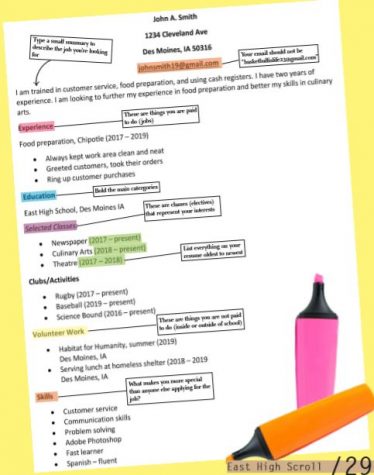 John A. Smith
1234 Cleveland Ave
Des Moines, IA 50316
johnsmith19@gmail.com
Type a small summary to
describe the job you're looking
for
Your email should not be
"basketballislife23@gmail.com"
I am trained in customer service, food preparation, and using cash registers. I have two years of
experience. I am looking to further my experience in food preparation and better my skills in culinary
arts.
Experience
These are things you are paid
to do (jobs)
Food preparation, Chipotle (2017 – 2019)
• Always kept work area clean and neat
• Greeted customers, took their orders
• Ring up customer purchases
Education
Bold the main categories
East High School, Des Moines IA
Selected Classes
These are classes (electives)
that represent your interests
• Newspaper (2017 – present)
• Culinary Arts (2018 – present)
• Theatre (2017 – 2018)
List everything on your
resume oldest to newest
Clubs/Activities
• Rugby (2017 – present)
• Baseball (2019 – present)
• Science Bound (2016 – present)
Volunteer Work
These are things you are not paid
to do (inside or outside of school)
• Habitat for Humanity, summer (2019)
Des Moines, IA
• Serving lunch at homeless shelter (2018 – 2019
Des Moines, IA
Skills
What makes you more special
than anyone else applying for the
job?
• Customer service
• Communication skills
• Problem solving
• Adobe Photoshop
• Fast learner
• Spanish – fluent
East High Scroll /29